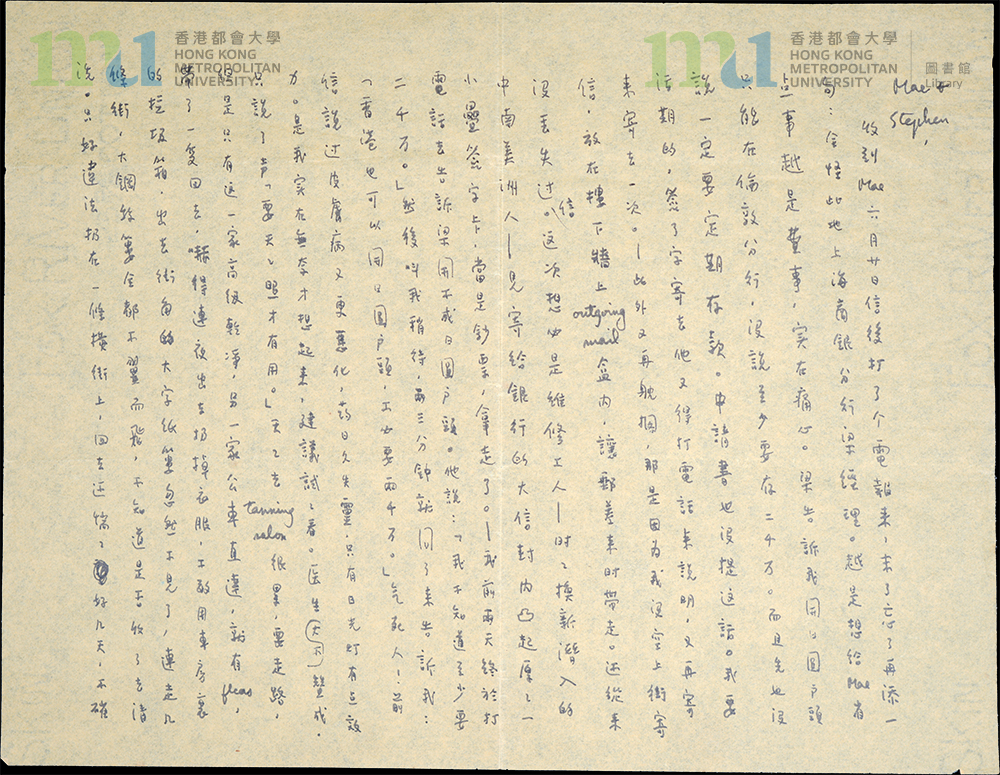 香港都會大學
HONG KONG
METROPOLITAN
UNIVERSITY
香港都會大學
HONG KONG
METROPOLITAN
UNIVERSITY
圖書館
Library
Mae &
Stephen,
收到Mae六月廿日信後打了个電報來,末了忘了再添一
句:全怪此地上海商銀分行梁經理。越是想給Mae省
点事越是費事,实在痛心。梁告訴我開日圓戶頭
只能在倫敦分行,沒說至少要存二千万。而且先也沒
說一定要定期存款。申請書也沒提這話。我要
活期的,簽了字寄去他又得打電話來說明,又再寄
來寄去一次。—此外又再躭擱,那是因为我沒空上街寄
信,放在樓下牆上outgoing mail盒內,讓郵差來時帶走。还從來
沒丟失过信。這次想必是維修工人—时时換新潛入的
中南美洲人—見寄給銀行的大信封內凸起厚厚一
小疊簽字卡,當是鈔票,拿走了。—我前兩天終於打
電話去告訴梁開不成日圓戶頭。他說:「我不知道至少要
二千万。」然後叫我稍待,兩三分钟就问了來告訴我:
「香港也可以開日圓戶頭,不必要兩千万。」气死人!前
信說过皮膚病又更惡化,药日久失靈,只有日光灯有点效
力。是我实在無奈才想起來,建議試試看。医生不大贊成,
只說了声「要天天照才有用。」天天去tanning salon很累,要走路,
但是只有这一家高級乾净,另一家公車直達,就有fleas,
帶了一隻回去,嚇得連夜出去扔掉衣服,不敢用車房裏
的垃圾箱。出去街角的大字紙簍忽然不見了,連走几
條街,大鋼絲簍全都不翼而飛,不知道是否收了去清
洗。只好違法扔在一條橫街上,回去还惴惴好几天,不確